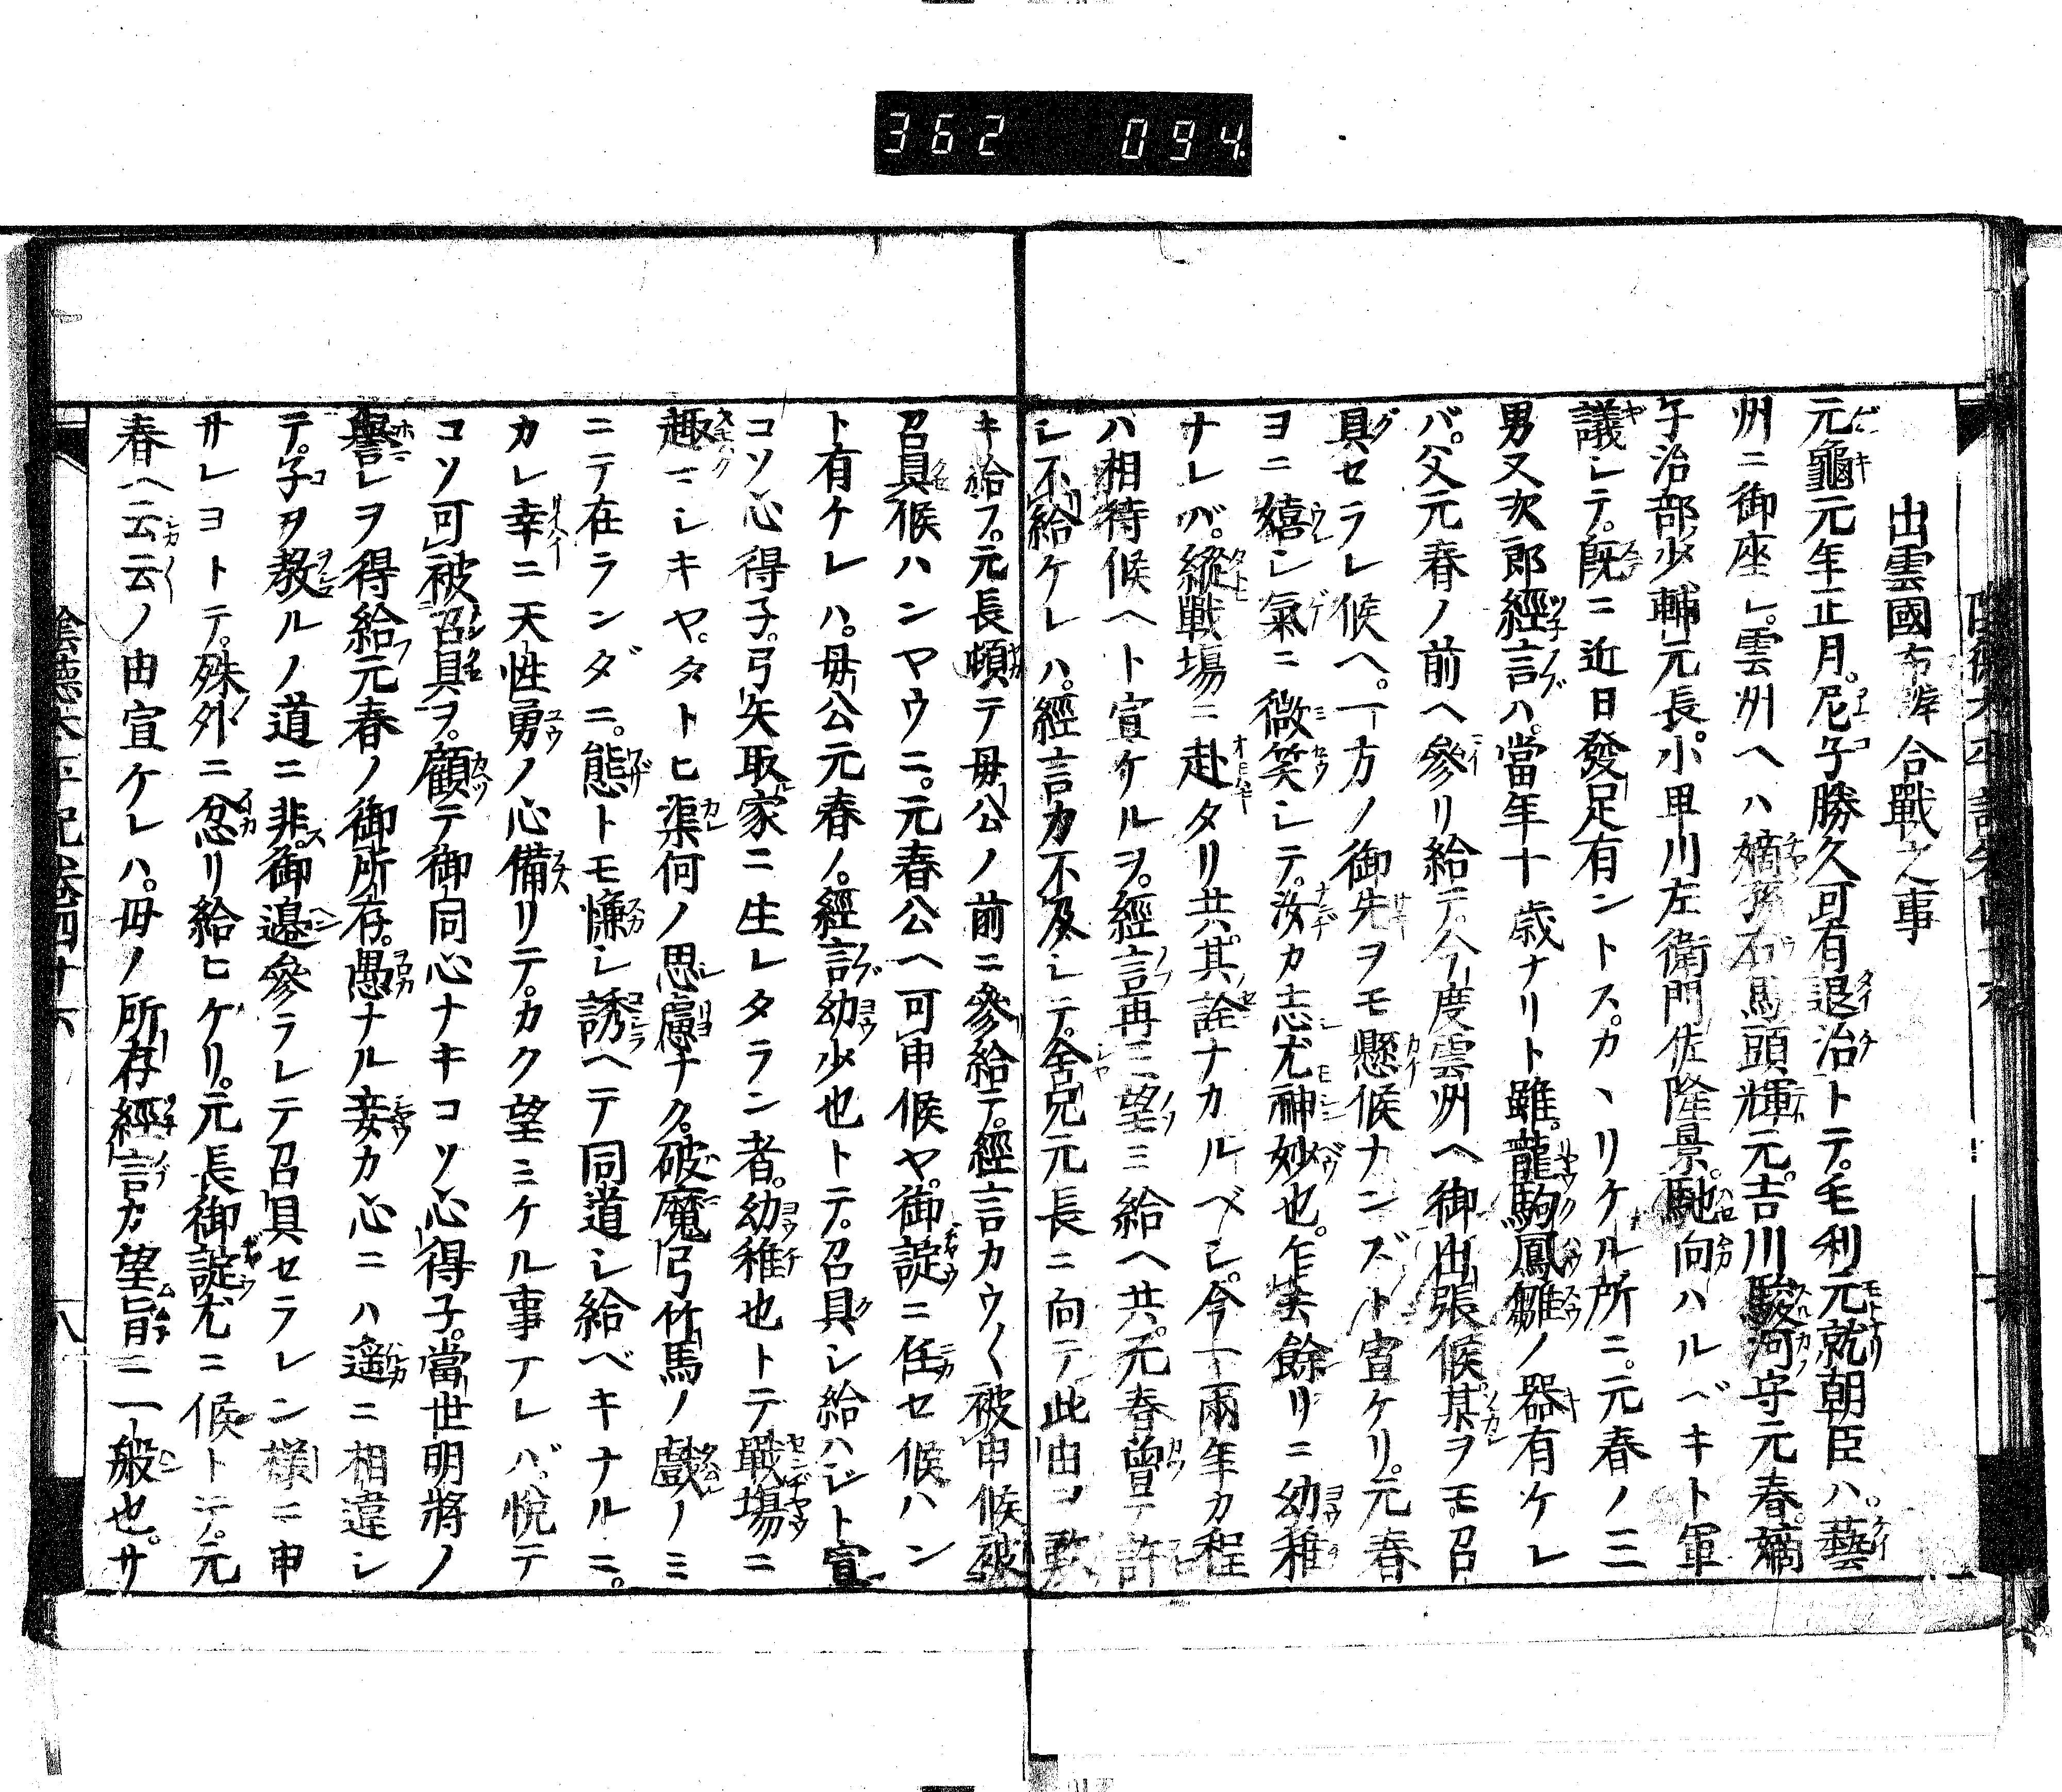 362 094
出雲國布部合戰之事
元龜元年正月。尼子勝久可有退治トテ。毛利元就朝臣ハ。藝
州ニ御座シ。雲州ヘハ嫡孫右馬頭輝元。吉川駿河守元春。嫡
子治部少輔元長。小早川左衛門佐隆景。馳向ハルベキト軍
議シテ。既ニ近日發足有ントス。カヽリケル所ニ。元春ノ三
男又次郎經言ハ。當年十歳ナリト雖。龍駒鳳雛ノ器有ケレ
バ。父元春ノ前ヘ參リ給テ。今度雲州ヘ御出張候。某ヲモ召
具セラレ候ヘ。一方ノ御先ヲモ懸候ナンズト宣ケリ。元春
ヨニ嬉シ氣ニ微笑シテ。汝カ志尤神妙也。乍去餘リニ幼稚
ナレバ。縱戰塲ニ赴タリ共。其詮ナカルベシ。今一兩年カ程
ハ相待候ヘト宣ケルヲ。經言再三望ミ給ヘ共。元春曾テ許
シ不給ケレハ。經言カ不及シテ。舍兄元長ニ向テ此由ヲ歎
キ給フ。元長頓テ母公ノ前ニ參給テ。經言カウ〱被申候。被
召具候ハンヤウニ。元春公ヘ可申候ヤ。御諚ニ任セ候ハン
ト有ケレハ。母公元春ノ。經言幼少也トテ。召具シ給ハジト宣
コソ心得子。弓矢取家ニ生レタラン者。幼稚也トテ戰塲ニ
趣マシキヤ。タトヒ渠何ノ思慮ナク。破魔弓竹馬ノ戲ノミ
ニテ在ランダニ。態トモ慊シ誘ヘテ同道シ給ベキナルニ。
カレ幸ニ天性勇ノ心備リテ。カク望ミケル事アレバ。悅テ
コソ可被召具ヲ。顧テ御同心ナキコソ心得子。當世明將ノ
譽レヲ得給フ元春ノ御所存。愚ナル妾カ心ニハ遙ニ相違シ
テ。子ヲ教ルノ道ニ非ス。御邉參ラレテ召具セラレン樣ニ申
サレヨトテ。殊外ニ忿リ給ヒケリ。元長御諚尤ニ候トテ。元
春ヘ云云ノ由宣ケレハ。母ノ所存經言カ望旨ニ一般也。サ
陰德太平記卷四十六 八